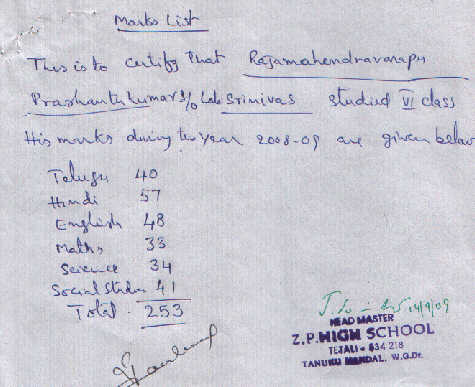 Marks List
This is to certify that Rajamahendravarapu
Prashanth kumar S/o Late Srinivas studied VI class
His marks during the year 2008-09 are given below
Telugu 40
Hindi 57
English 48
Maths 33
Science 34
Social Studies 41
Total - 253
14/9/09
HEAD MASTER
Z.P.HIGH SCHOOL
TETALI - 534 218
TANUKU MANDAL, W.G.Dt.